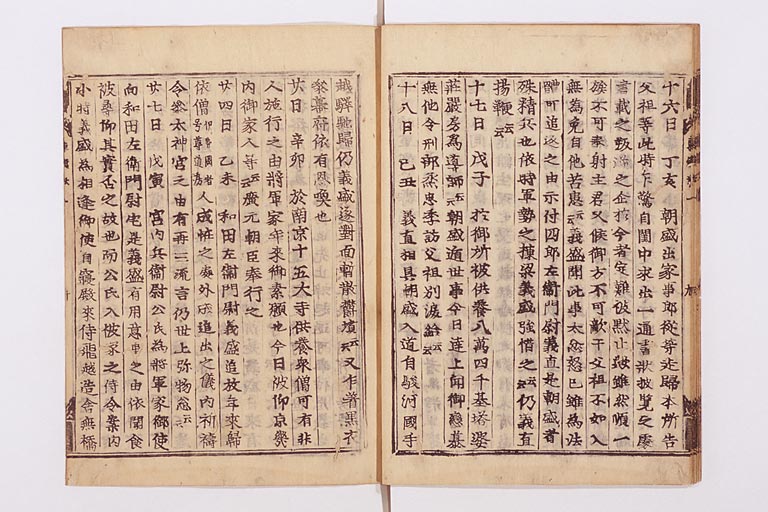 十六日 丁亥 朝盛出家事郎從等走歸本所告
父祖等此時乍驚自閨中求出一通書状披覽之處
書載之叛逆之企於今者定難被默止歟雖然順一
族不可奉射主君又候御方不可敵于父祖不如入
無為免自他苦患云々義盛聞此事太忿怒已雖為法
體可追返之由示付四郎左衛門尉義直是朝盛者
殊精兵也依時軍勢之棟梁義盛強惜之云々仍義直
揚鞭云々
十七日 戊子 於御所被供養八萬四千基塔婆
莊嚴房為導師云々朝盛遁世事今日達上聞御戀慕
無他令刑部丞忠季訪父祖別涙給云々
十八日 己丑 義直相具朝盛入道自駿河國手
越驛馳歸仍義盛遂對面暫散鬱墳云々又乍著黒衣
參幕府依有恩喚也
廿日 辛卯 於南京十五大寺供養衆僧可有非
人施行之由將軍家年來御素願也今日被仰京畿
内御家人等云々廣元朝臣奉行之
廿四日 乙未 和田左衛門尉義盛追放年來歸
依僧伊勢國者号尊道房人成恠之處外示追出之儀内祈禱
令參太神宮之由有再三流言仍世上弥物忩云々
廿七日 戊寅 宮内兵衛尉公氏為將軍家御使
向和田左衛門尉宅是義盛有用意事之由依聞食
被尋仰其實否之故也而公氏入彼家之侍令案内
小時義盛為相逢御使自寢殿來侍飛越造合無橋